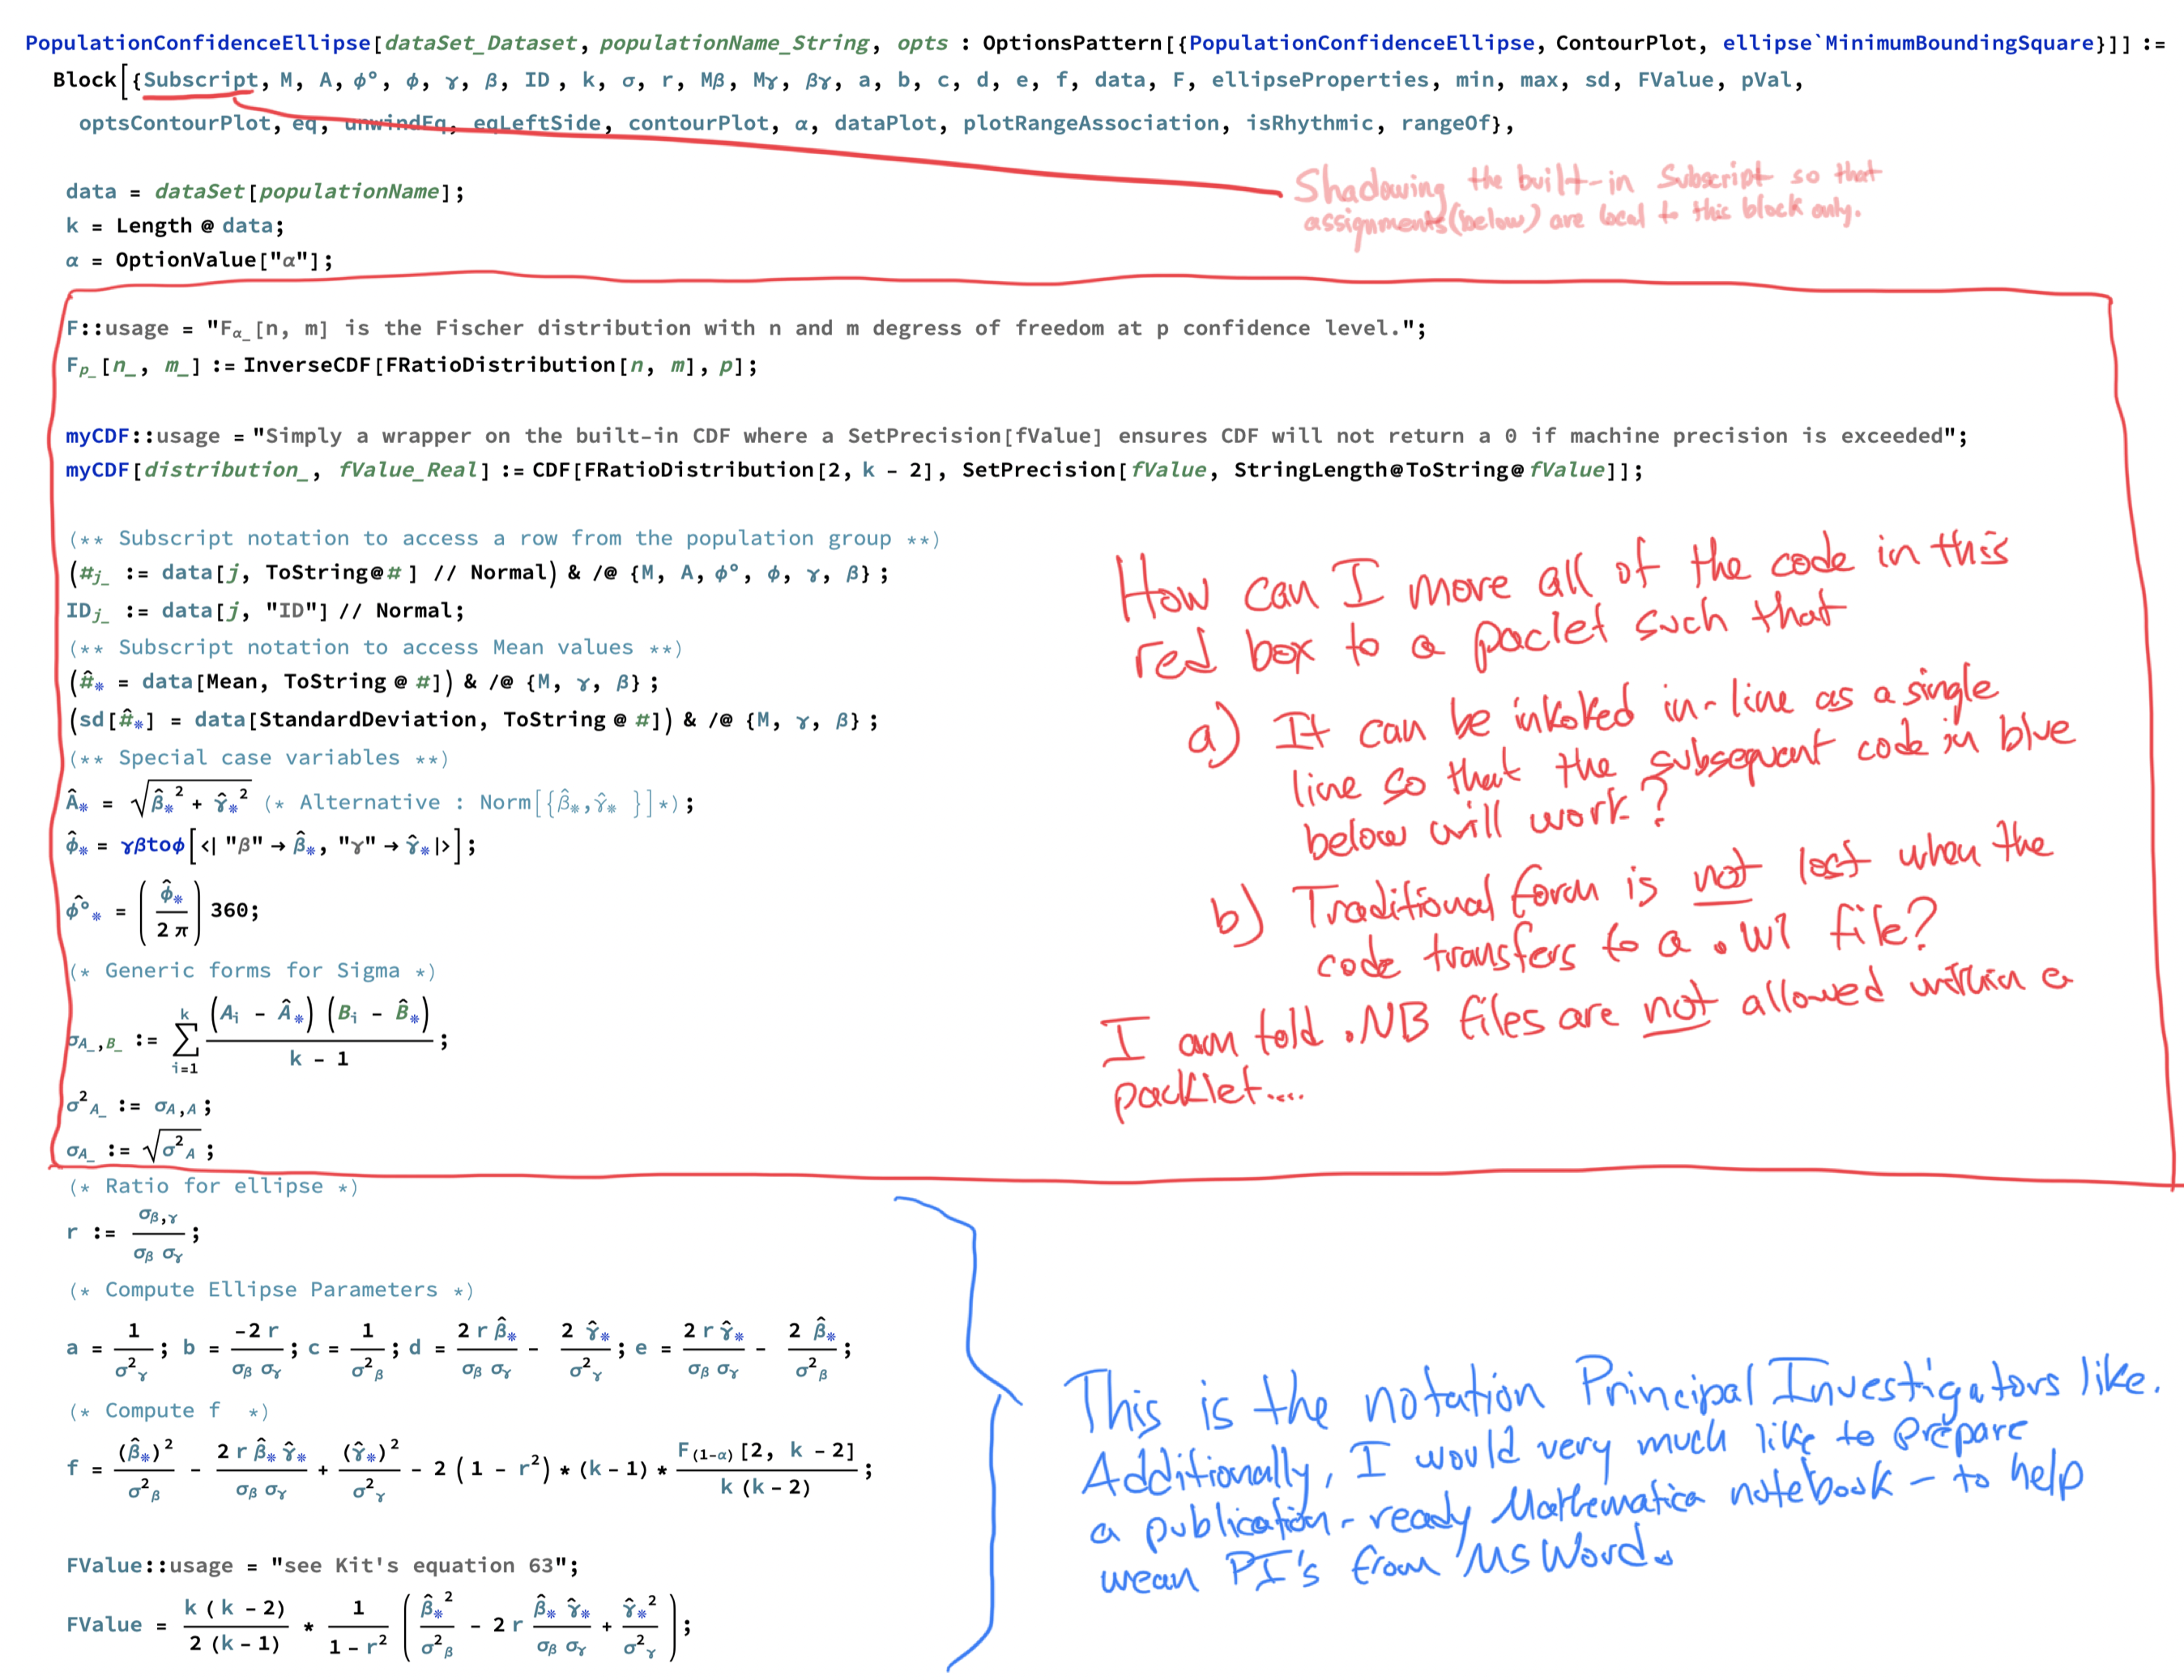 PopulationConfidenceEllipse[dataSet_Dataset, populationName_String, opts : OptionsPattern[{PopulationConfidenceEllipse, ContourPlot, ellipse`MinimumBoundingSquare}]] :=
Block[{Subscript, M, A, ϕ°, ϕ, γ, β, ID , k, σ, r, Mβ, Mγ, βγ, a, b, c, d, e, f, data, F, ellipseProperties, min, max, sd, FValue, pVal,
optsContourPlot, eq, unwindEq, eqLeftSide, contourPlot, α, dataPlot, plotRangeAssociation, isRhythmic, rangeOf},
Shadowing the built-in Subscript so that
assignments(below) are local to this block only.
data = dataSet[populationName];
k = Length @ data;
α = OptionValue["α"];
F::usage = "Fα_[n, m] is the Fischer distribution with n and m degress of freedom at p confidence level.";
Fp_[n_, m_] := InverseCDF[FRatioDistribution[n, m], p];
myCDF::usage = "Simply a wrapper on the built-in CDF where a SetPrecision[fValue] ensures CDF will not return a 0 if machine precision is exceeded";
myCDF[distribution_, fValue_Real] := CDF[FRatioDistribution[2, k - 2], SetPrecision[fValue, StringLength@ToString@fValue]];
(** Subscript notation to access a row from the population group **)
(#j_ := data[j, ToString@# ] // Normal) & /@ {M, A, ϕ°, ϕ, γ, β} ;
IDj_ := data[j, "ID"] // Normal;
(** Subscript notation to access Mean values **)
(#̂* = data[Mean, ToString @ #]) & /@ {M, γ, β} ;
(sd[#̂*] = data[StandardDeviation, ToString @ #]) & /@ {M, γ, β} ;
(** Special case variables **)
Â* = √(β̂*² + γ̂*²) (* Alternative : Norm[{β̂*,γ̂* }]*);
ϕ̂* = γβtoϕ[<| "β" → β̂*, "γ" → γ̂* |>];
ϕ̂°* = (ϕ̂* / 2 π) 360;
(* Generic forms for Sigma *)
σA_,B_ := ∑ i=1 k (Ai - Â*) (Bi - B̂*) / k - 1 ;
σ²A_ := σA,A;
σA_ := √σ²A ;
How can I move all of the code in this
red box to a paclet such that
a) It can be inkoked in-line as a single
line so that the subsequent code in blue
below will work?
b) Traditional form is not lost when the
code transfers to a .Wl file?
I am told .NB files are not allowed within a
packlet....
(* Ratio for ellipse *)
r := σβ,γ / σβ σγ ;
(* Compute Ellipse Parameters *)
a = 1 / σ²γ ; b = -2 r / σβ σγ ; c = 1 / σ²β ; d = 2 r β̂* / σβ σγ - 2 γ̂* / σ²γ ; e = 2 r γ̂* / σβ σγ - 2 β̂* / σ²β ;
(* Compute f *)
f = (β̂*)² / σ²β - 2 r β̂* γ̂* / σβ σγ + (γ̂*)² / σ²γ - 2 (1 - r²) * (k - 1) * F(1-α) [2, k - 2] / k (k - 2) ;
FValue::usage = "see Kit's equation 63";
FValue = k ( k - 2) / 2 (k - 1) * 1 / 1 - r² ( β̂*² / σ²β - 2 r β̂* γ̂* / σβ σγ + γ̂*² / σ²γ );
This is the notation Principal Investigators like.
Additionally, I would very much like to prepare
a publication-ready Mathematica notebook - to help
wean PI's from MS Word.